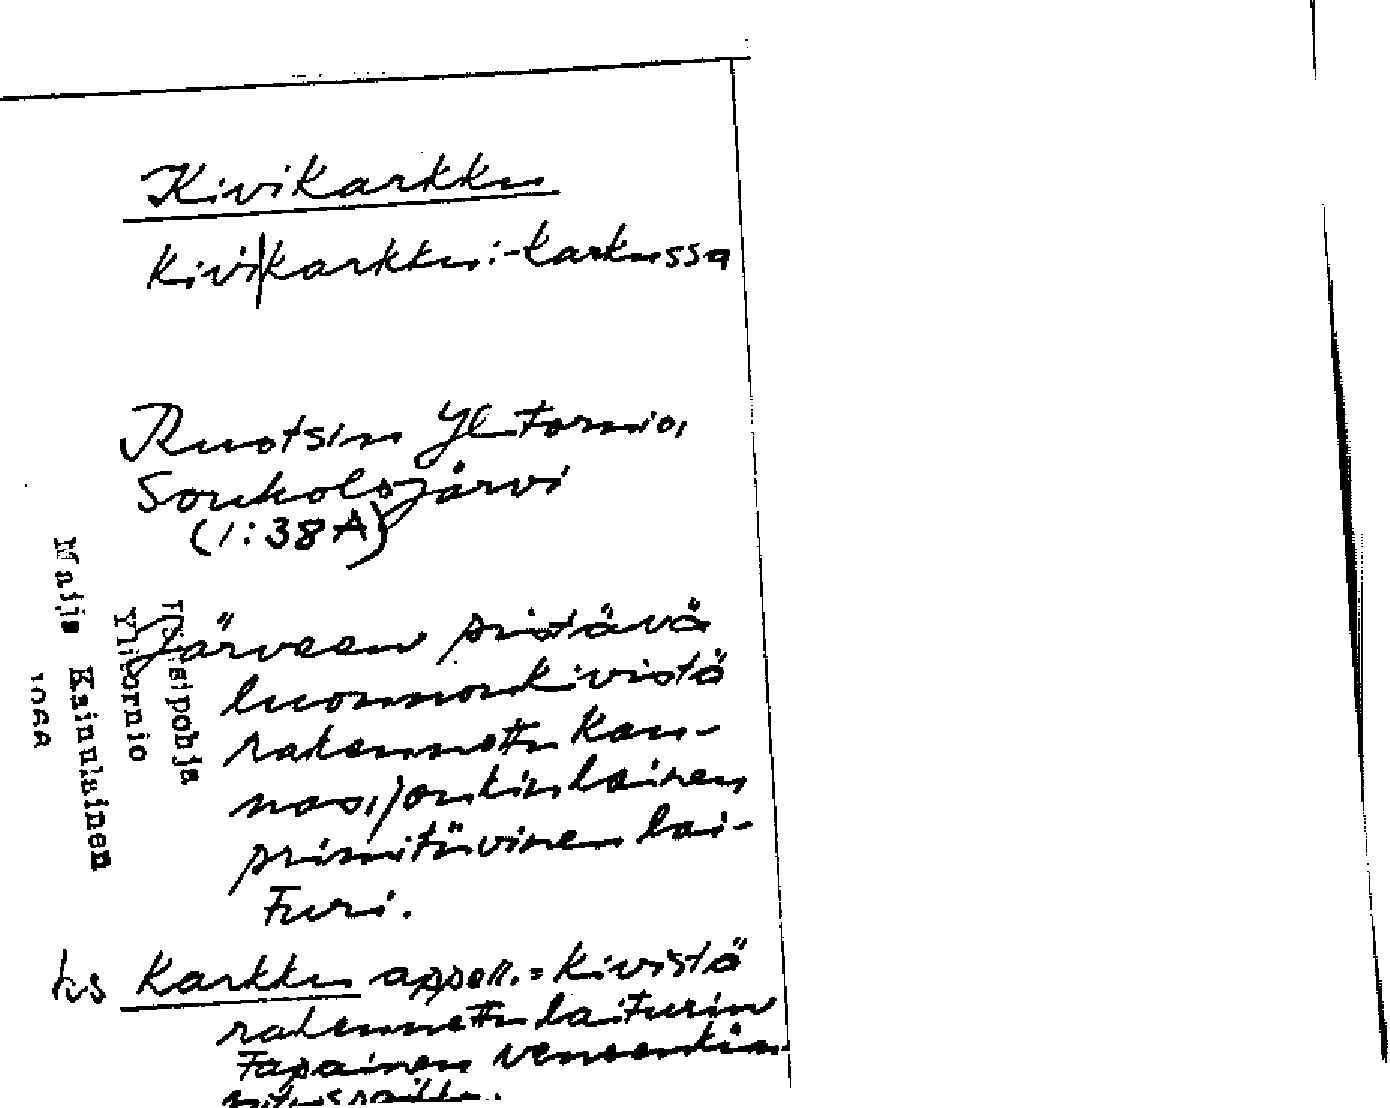 Kivikarkku
Kivi|karkku:-karkussa
Ruotsin Ylitornio,
Soukolojärvi
(1:38A)
Järveen pistävä
luonnonkivistä
rakennettu kan-
nas, jonkinlainen
primitiivinen lai-
turi.
ks Karkku appell. = kivistä
rakennettu laiturin
tapainen veneenkiin-
nityspaikka.
Ylitornio
Maija Kainulainen